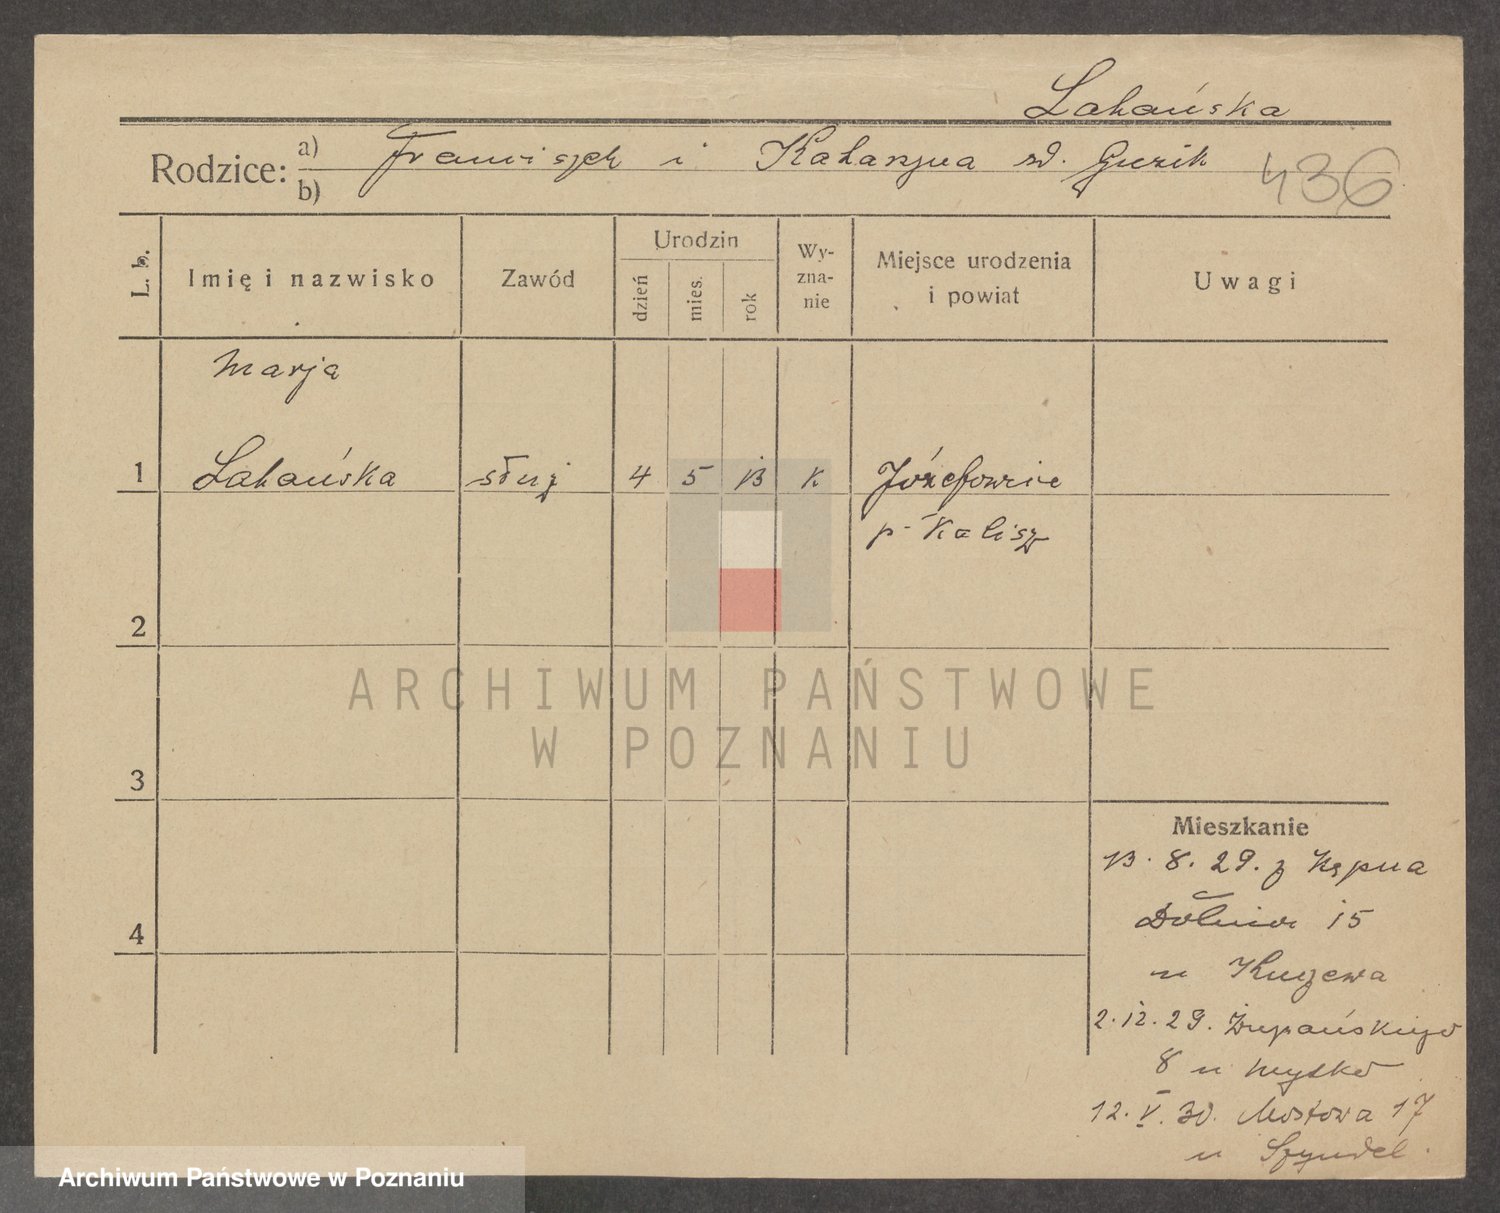 Lahańska
Rodzice: a) Franciszek i Katarzyna zd. Guzik
b)
436
L. b.
Imię i nazwisko
Zawód
Urodzin
dzień
mies.
rok
Wy-
zna-
nie
Miejsce urodzenia
i powiat
Uwagi
Marja
1 Lahańska służ 4 5 13 k Józefowie
p. Kalisz
2
3
4
Mieszkanie
13. 8. 29. z Kępna
Dolina 15
u Kuczewa
2.12.29. Żupańskiego
8 u Myśko
12. V. 30. Mostowa 17
u Szyndel.
ARCHIWUM PAŃSTWOWE
W POZNANIU
Archiwum Państwowe w Poznaniu